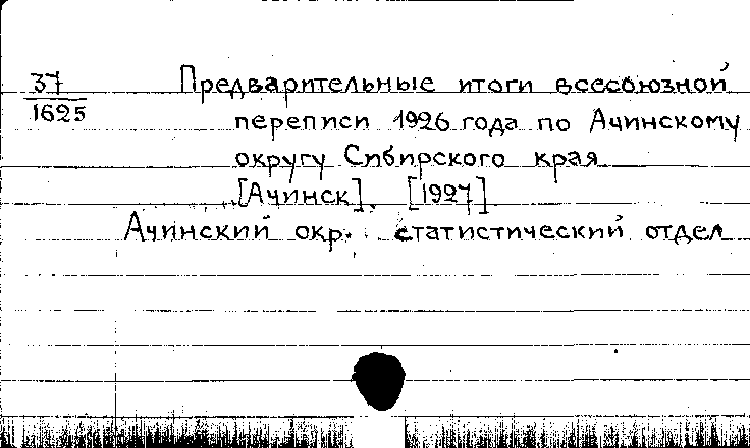 37
1625
Предварительные итоги всесоюзной
переписи 1926 года по Ачинскому
округу Сибирского края
[Ачинск]. [1927]
Ачинский окр. статистический отдел